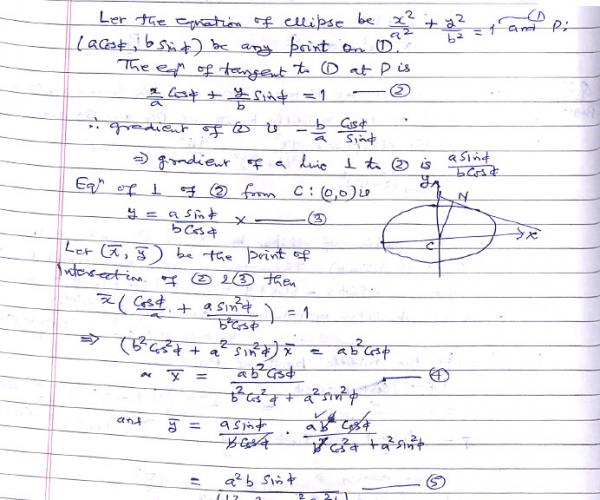 Let the equation of ellipse be x²/a² + y²/b² = 1 —① and P:
(a cosϕ, b sinϕ) be any point on ①.
The eqⁿ of tangent to ① at P is
x/a cosϕ + y/b sinϕ = 1 —②
∴ gradient of ② is - b/a cosϕ/sinϕ
⇒ gradient of a line ⊥ to ② is a sinϕ/b cosϕ
Eqⁿ of ⊥ of ② from C: (0,0) is
y = a sinϕ/b cosϕ x —③
y
N
C
x
Let (x̄, ȳ) be the point of
intersection of ② & ③ then
x̄ (cosϕ/a + a sin²ϕ/b² cosϕ) = 1
⇒ (b² cos²ϕ + a² sin²ϕ) x̄ = ab² cosϕ
or x̄ = ab² cosϕ/b² cos²ϕ + a² sin²ϕ —④
and ȳ = a sinϕ/b cosϕ . ab² cosϕ/b² cos²ϕ + a² sin²ϕ
= a² b sinϕ —⑤